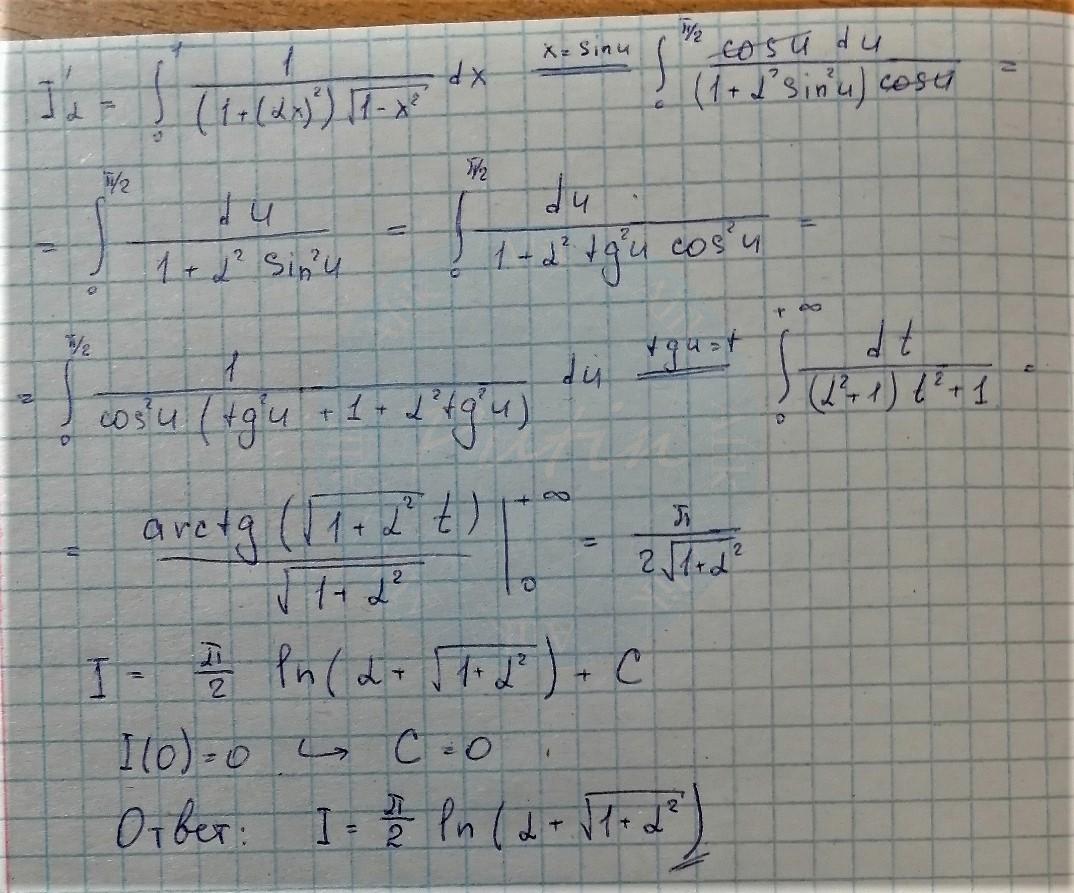 I'_α = ∫₀¹ 1/((1+(αx)²)√(1-x²)) dx x=sin u ∫₀^(π/2) cos u du/((1+α² sin²u) cos u) =
= ∫₀^(π/2) du/(1+α² sin²u) = ∫₀^(π/2) du/(1+α² tg²u cos²u) =
= ∫₀^(π/2) 1/(cos²u (tg²u + 1 + α² tg²u)) du tg u = t ∫₀^(+∞) dt/((α²+1) t²+1) =
= arctg (√(1+α²) t)/√(1+α²) |₀^(+∞) = π/(2√(1+α²))
I = π/2 ln(α + √(1+α²)) + C
I(0)=0 ↪ C=0
Ответ: I = π/2 ln(α + √(1+α²))